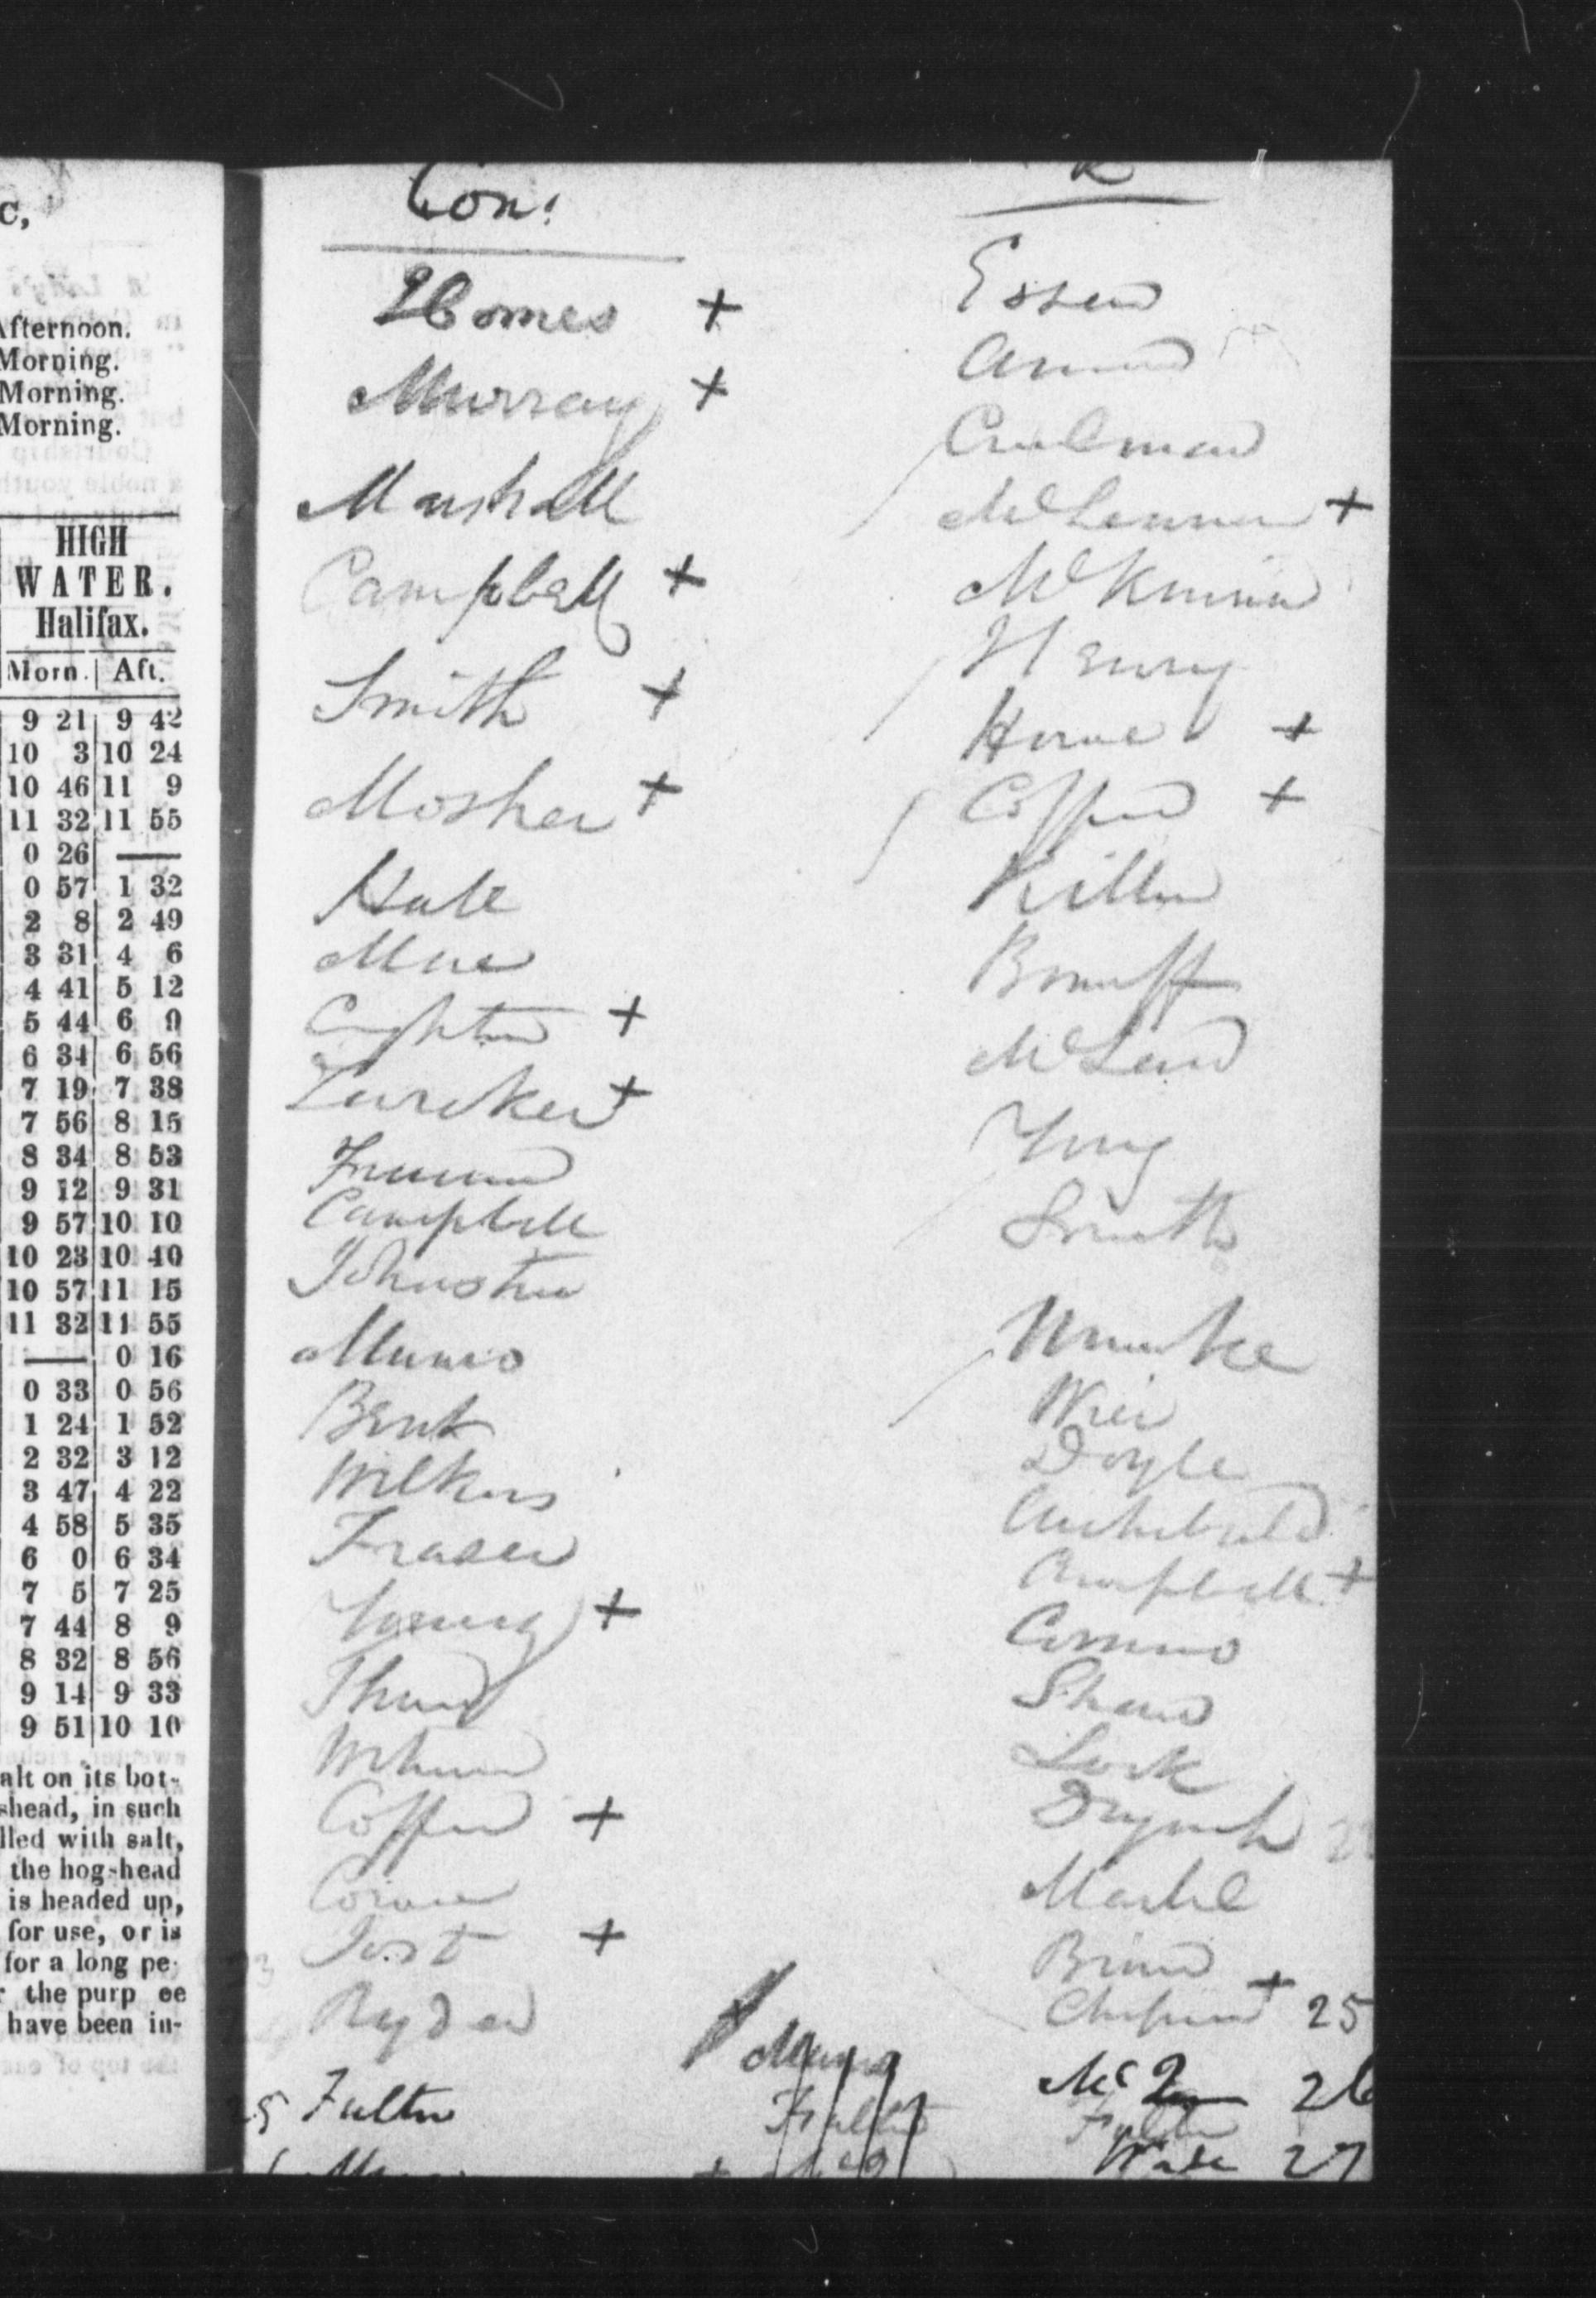 C,
Afternoon.
Morning.
Morning.
Morning.
HIGH
WATER.
Halifax.
Morn. | Aft.
9 21 9 42
10 3 10 24
10 46 11 9
11 32 11 55
0 26 —
0 57 1 32
2 8 2 49
3 31 4 6
4 41 5 12
5 44 6 9
6 34 6 56
7 19 7 38
7 56 8 15
8 34 8 53
9 12 9 31
9 57 10 10
10 23 10 40
10 57 11 15
11 32 11 55
— 0 16
0 33 0 56
1 24 1 52
2 32 3 12
3 47 4 22
4 58 5 35
6 0 6 34
7 5 7 25
7 44 8 9
8 32 8 56
9 14 9 33
9 51 10 10
alt on its bot-
shead, in such
lled with salt,
the hog-head
is headed up,
for use, or is
for a long pe-
r the purp ee
have been in-
Con:
Homes +
Murray +
Marshall
Campbell +
Smith +
Mosher +
Hall
Creighton +
Zwicker +
Campbell
Johnston
Munro
Bent
Wilkins
Fraser
Young +
Coffin +
Jost +
Ryder
25 Fulton
Esson
Annand
Creelman
McLennan +
McKinnon
Henry
Howe +
Coffin +
Killam
McLeod
Young
Smith
Wier
Doyle
Archibald
Campbell +
Comeau
Shaw
Lock
Martel
Chipman + 25
26
Fulton
Wade 27